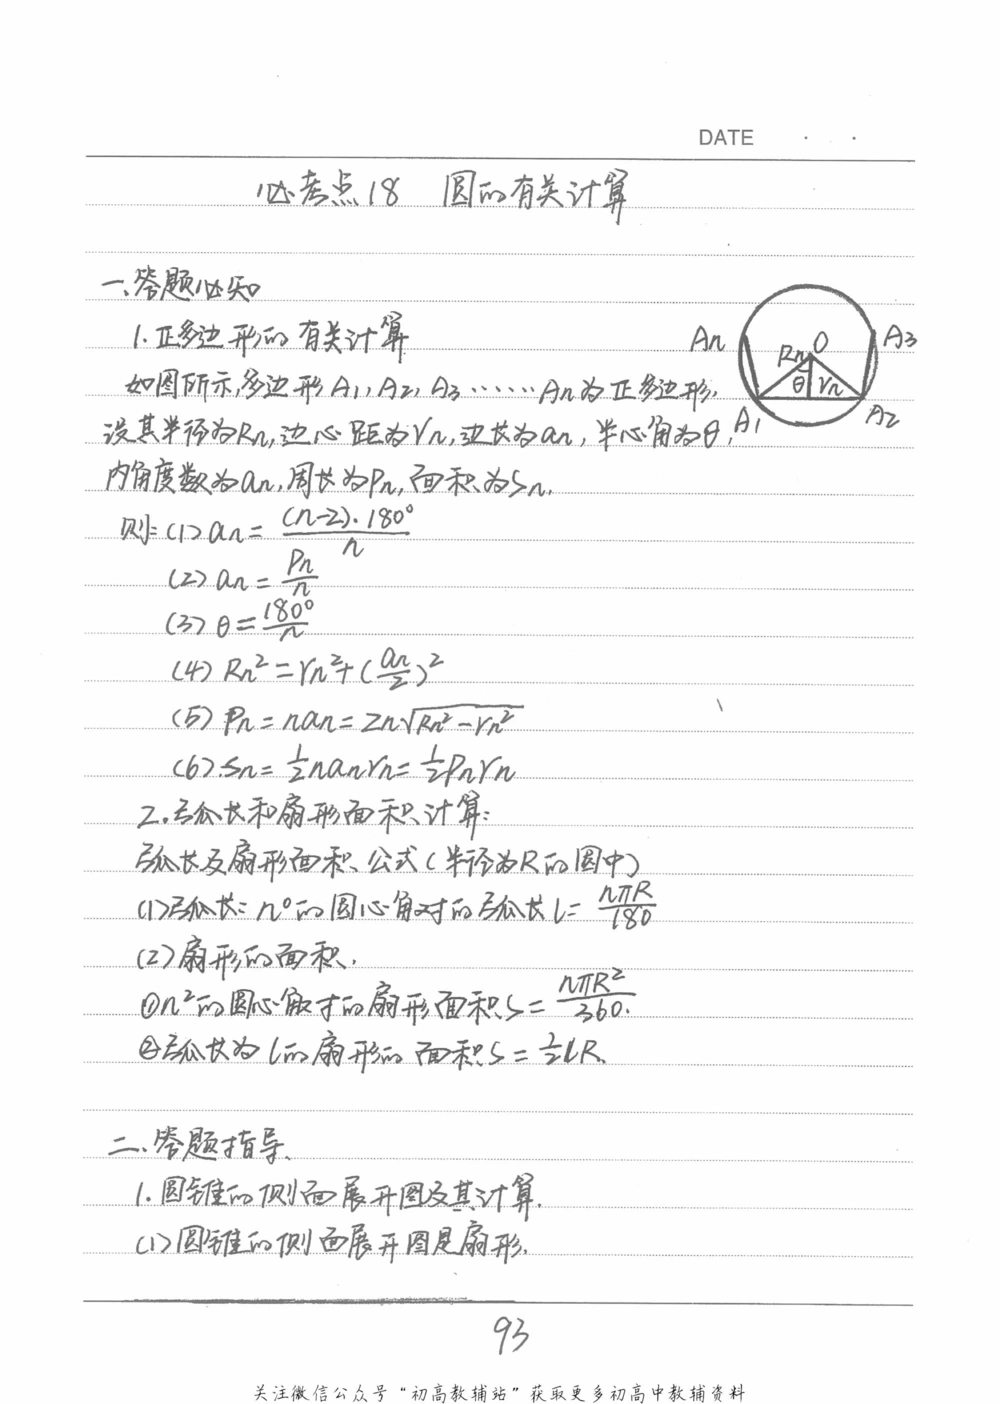 DATE
必考点18 圆的有关计算
一、答题必知
1.正多边形的有关计算
如图所示,多边形A1,A2,A3……An为正多边形,
设其半径为Rn,边心距为rn,边长为an,半心角为θ,
内角度数为an,周长为Pn,面积为Sn.
An A3
Rn O
θ rn
A1 A2
则:(1)an=(n-2)·180°/n
(2)an=Pn/n
(3)θ=180°/n
(4)Rn²=rn²+(an/2)²
(5)Pn=nan=2n√(Rn²-rn²)
(6).Sn=1/2nanrn=1/2Pnrn
2.弧长和扇形面积计算:
弧长及扇形面积公式(半径为R的圆中)
(1)弧长:n°的圆心角对的弧长l=nπR/180
(2)扇形的面积.
①n²的圆心角对的扇形面积S=nπR²/360.
②弧长为l的扇形的面积S=1/2lR.
二.答题指导.
1.圆锥的侧面展开图及其计算.
(1)圆锥的侧面展开图是扇形.
93
关注微信公众号“初高教辅站”获取更多初高中教辅资料